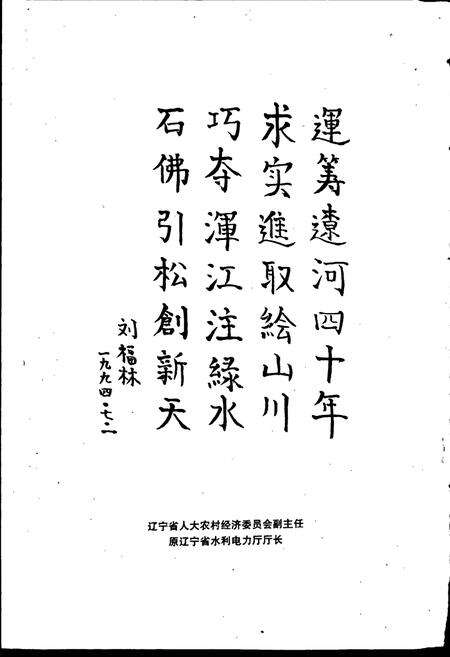 運筹遼河四十年
求实進取絵山川
巧夺渾江注緑水
石佛引松創新天
刘福林
一九九四·七·二
辽宁省人大农村经济委员会副主任
原辽宁省水利电力厅厅长